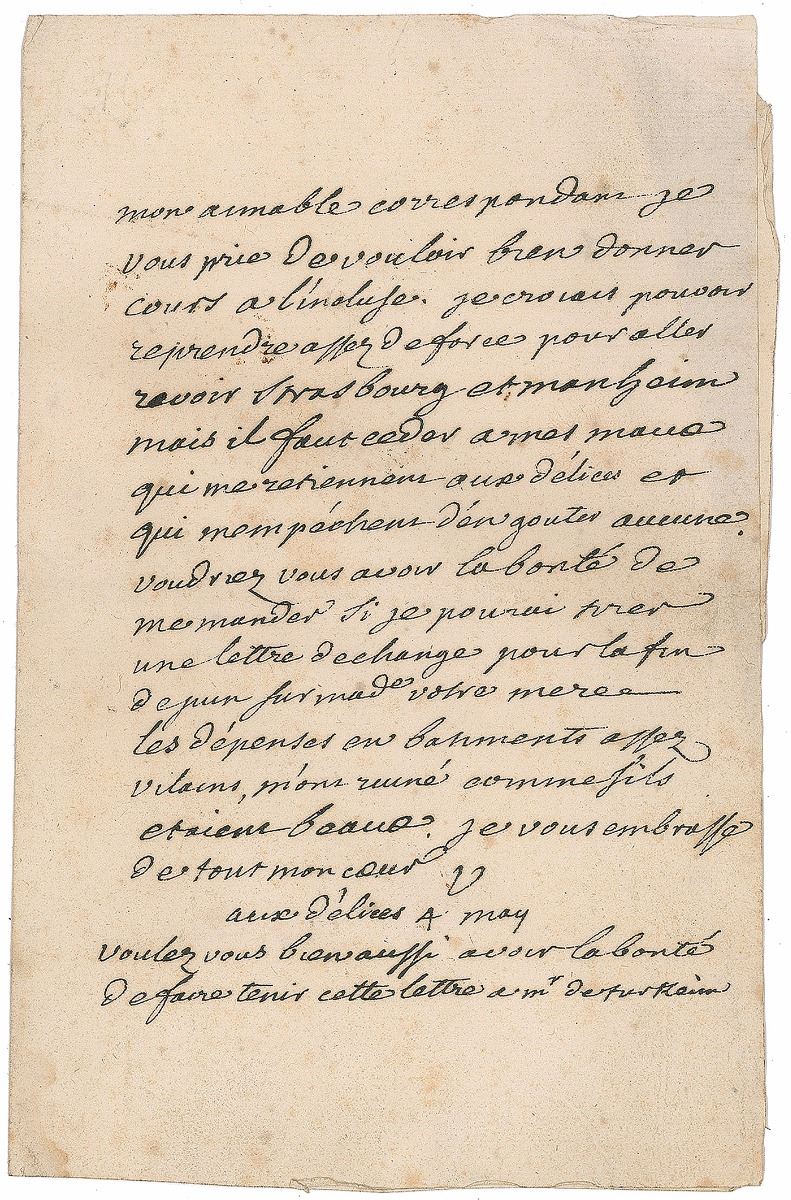 mon aimable correspondant je
vous prie de vouloir bien donner
cours a l'incluse. je croiais pouvoir
reprendre assez de force pour aller
revoir strasbourg et manheim
mais il faut ceder a mes maux
qui me retiennent aux délices et
qui m'empéchent d'en gouter aucune.
voudriez vous avoir la bonté de
me mander si je pourai tirer
une lettre de change pour la fin
de juin sur made votre mere
les dépenses en batiments assez
vilains, m'ont ruiné comme s'ils
etaient beaux. je vous embrasse
de tout mon cœur V
aux délices 4 may
voulez vous bien aussi avoir la bonté
de faire tenir cette lettre a mr de turkeim